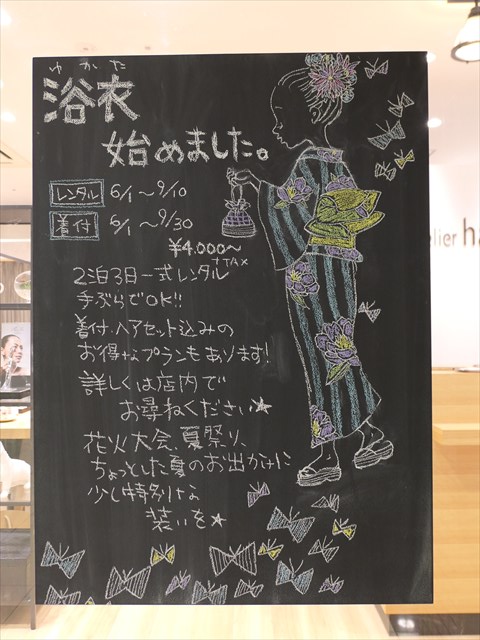 ゆかた
浴衣
始めました。
レンタル 6/1〜9/10
着付 6/1〜9/30
¥4.000〜
+TAX
2泊3日一式レンタル
手ぶらでOK!!
着付.ヘアセット込みの
お得なプランもあります!
詳しくは店内で
お尋ねください★
花火大会、夏祭り、
ちょっとした夏のお出かけに
少し特別な
装いを★
elier ha